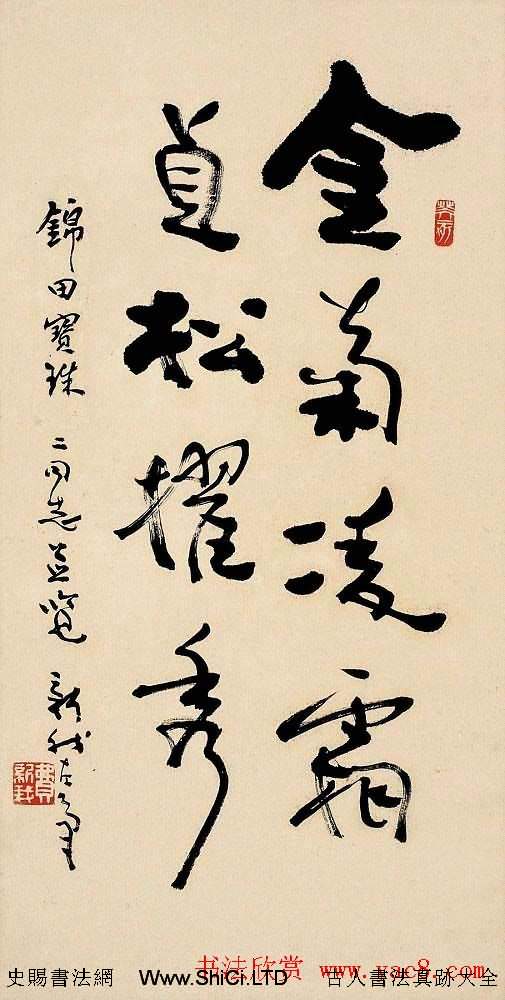 金菊凌霜
貞松擢秀
錦田寶珠 二同志並覽 新我左筆
費新我
书法欣赏 www.yac8.com
史賜書法網 Www.ShiCi.LTD 古人書法真跡大全